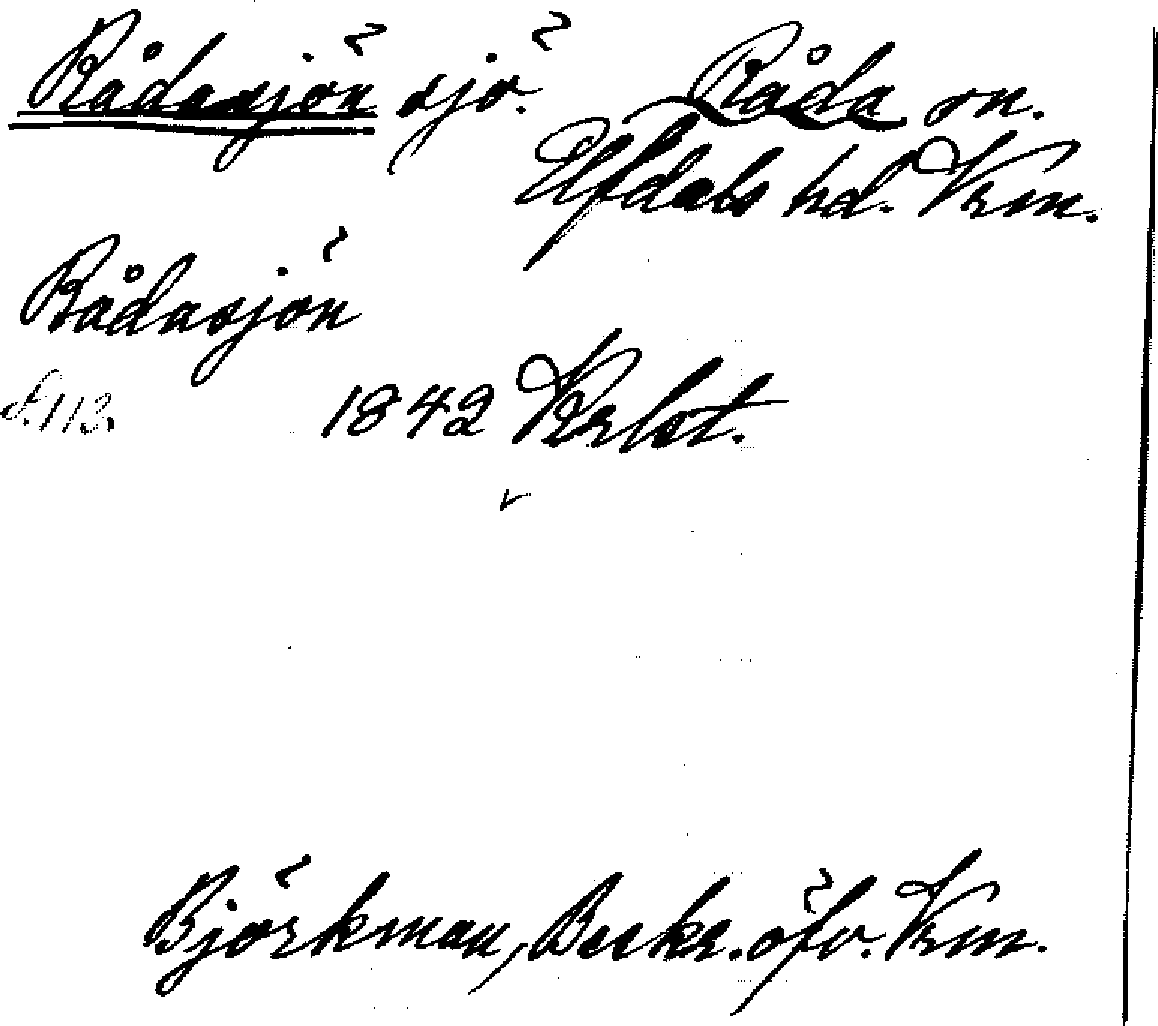 Rådasjön sjö. Råda sn.
Elfdals hd. Vrm.
Rådasjön
s. 113.
1842
Björkman, Beskr. öfv. Vrm.